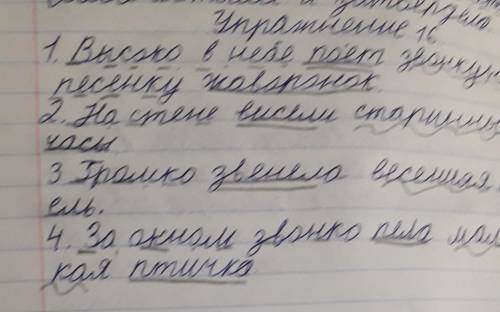 Упражнение 16
1. Высоко в небе поёт звонкую
песенку жаворонок.
2. На стене висели старинн
часы
3 Громко звенела весенняя
ель.
4. За окном звонко пела мал
кая птичка